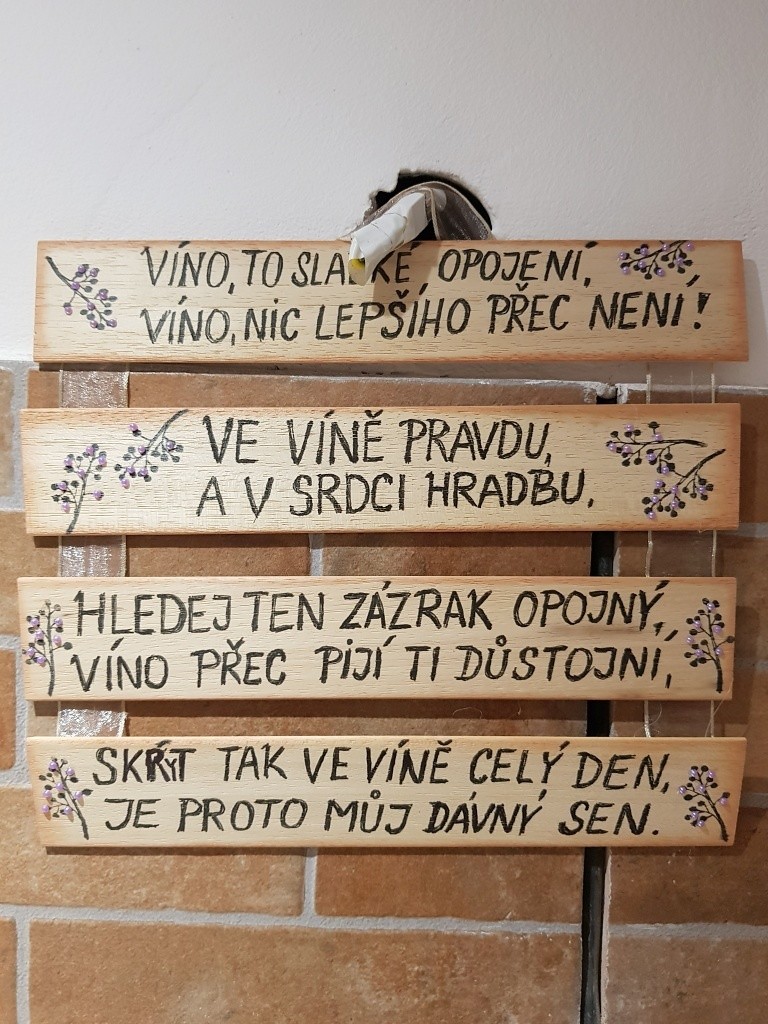 VÍNO, TO SLADKÉ OPOJENÍ,
VÍNO, NIC LEPŠÍHO PŘEC NENÍ!
VE VÍNĚ PRAVDU,
A V SRDCI HRADBU,
HLEDEJ TEN ZÁZRAK OPOJNÝ,
VÍNO PŘEC PIJÍ TI DŮSTOJNÍ,
SKRÝT TAK VE VÍNĚ CELÝ DEN,
JE PROTO MŮJ DÁVNÝ SEN.